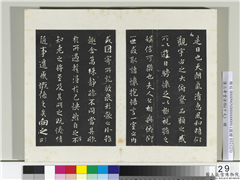 是日也天朗氣清惠風和暢仰
觀宇宙之大俯察品類之盛
所以遊目騁懷足以極視聽之
娛信可樂也夫人之相與俯仰
一世或取諸懷抱悟言一室之內
或因寄所託放浪形骸之外雖
趣舍萬殊靜躁不同當其欣
於所遇暫得於己快然自足不
知老之將至及其所之既惓情
隨事遷感慨係之矣向之所
29